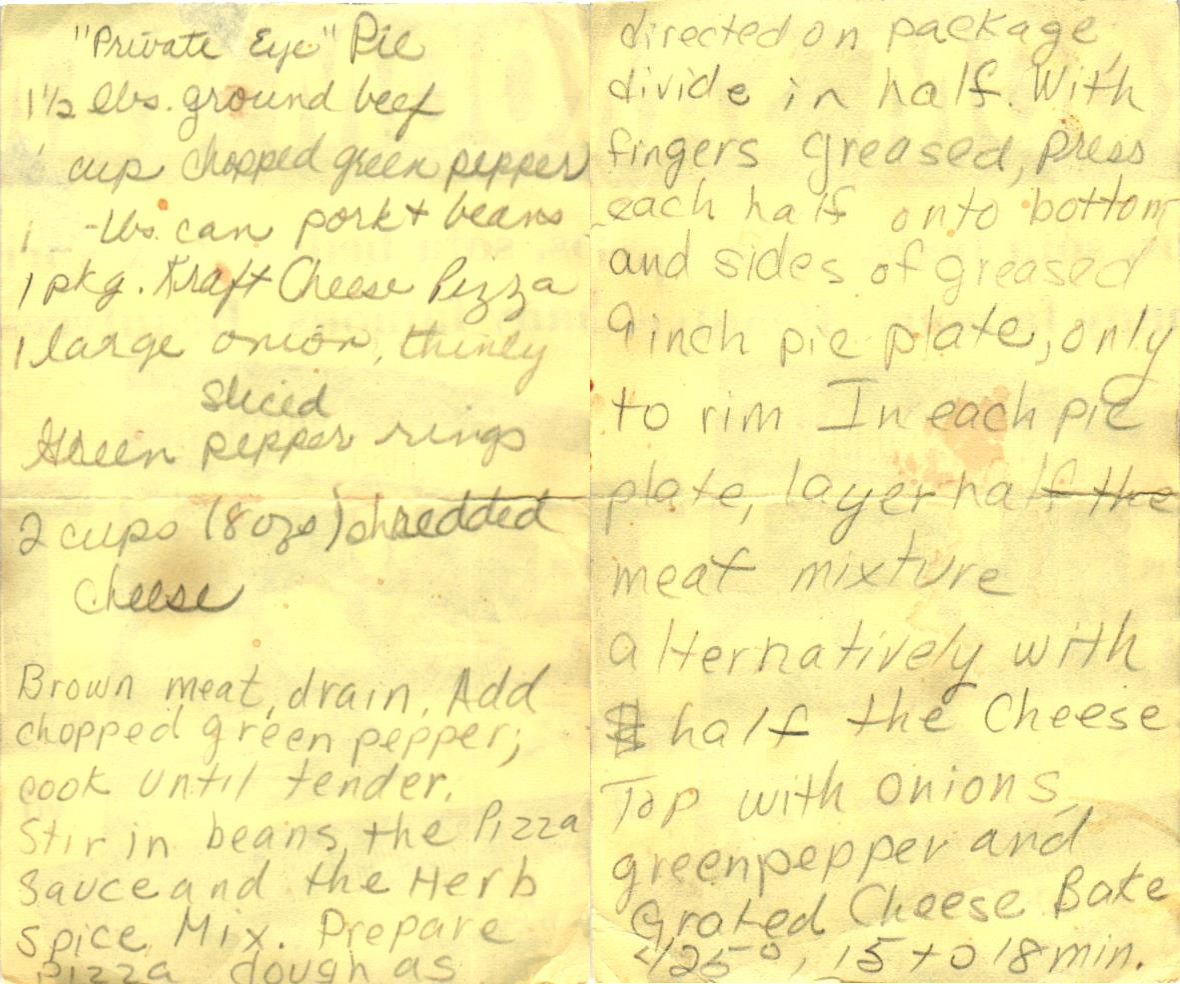 "Private Eye" Pie
1½ lbs. ground beef
1 cup chopped green pepper
1 -lbs. can pork + beans
1 pkg. Kraft Cheese Pizza
1 large onion, thinly
sliced
Green pepper rings
2 cups (8 ozs) shredded
Cheese
Brown meat, drain. Add
chopped green pepper;
cook until tender.
Stir in beans, the Pizza
Sauce and the Herb
Spice Mix. Prepare
Pizza dough as
directed on package,
divide in half. With
fingers greased, press
each half onto bottom
and sides of greased
9 inch pie plate, only
to rim In each pie
plate, layer half the
meat mixture
alternatively with
half the Cheese
Top with onions,
greenpepper and
Grated Cheese Bake
425°, 15 to 18 min.